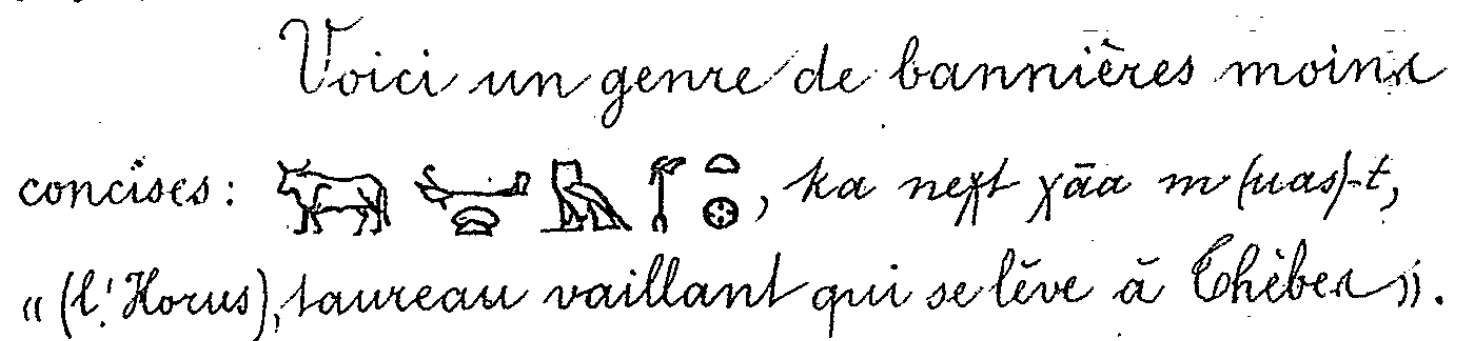 Voici un genre de bannières moins
concises : 𓃒𓂡𓈍𓅓𓋆𓏏𓊖, ka neχt χāa m (uas)-t,
« (l'Horus), taureau vaillant qui se lève à Thèbes ».